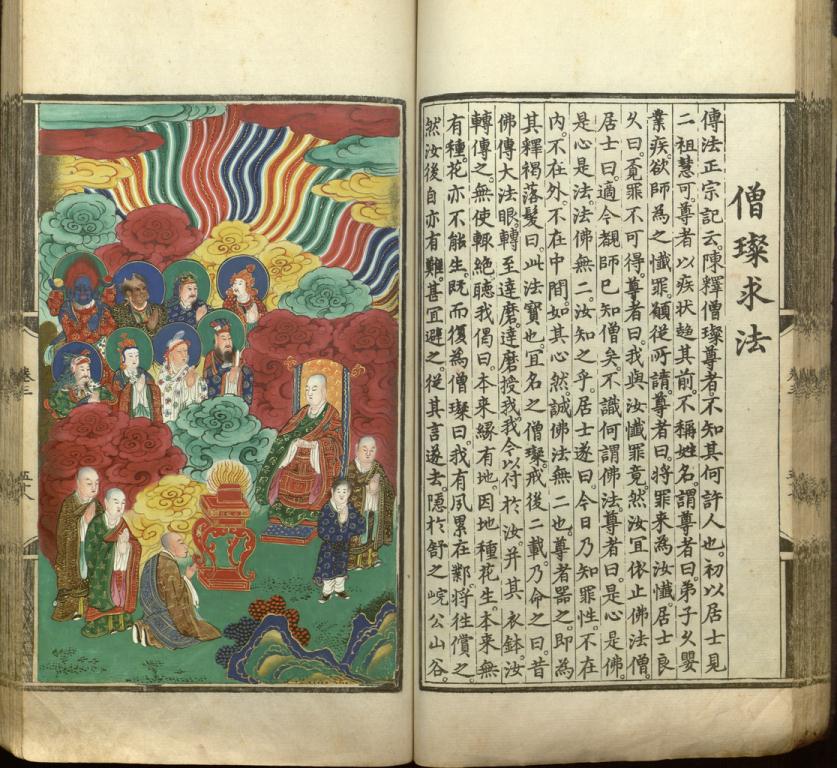 僧璨求法
傳法正宗記云。陳釋僧璨尊者。不知其何許人也。初以居士見
二祖慧可。尊者以疾狀趍其前。不稱姓名。謂尊者曰。弟子久嬰
業疾。欲師為之懺罪。願從所請。尊者曰。將罪来為汝懺。居士良
久曰。覓罪不可得。尊者曰。我與汝懺罪竟。然汝宜依止佛法僧。
居士曰。適今覩師已知僧矣。不識何謂佛法。尊者曰。是心是佛。
是心是法。法佛無二。汝知之乎。居士遂曰。今日乃知罪性。不在
內。不在外。不在中間。如其心然。誠佛法無二也。尊者器之。即為
其釋褐落髮曰。此法寶也。宜名之僧璨。戒後二載。乃命之曰。昔
佛傳大法眼。轉至達磨。達磨授我。我今以付於汝。并其衣鉢。汝
轉傳之。無使輒絕。聽我偈曰。本来緣有地。因地種花生。本来無
有種。花亦不能生。既而復為僧璨曰。我有夙累在鄴。將往償之。
然汝後自亦有難。甚宜避之。從其言遂去。隱於舒之公山谷。